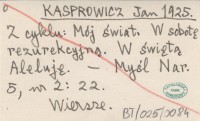 KASPROWICZ Jan 1925.
Z cyklu: Mój świat. W sobotę
rezurekcyjną. W święta
Aleluję. — Myśl Nar.
5, nr 2: 22.
Wiersze.
BJ/025/0084